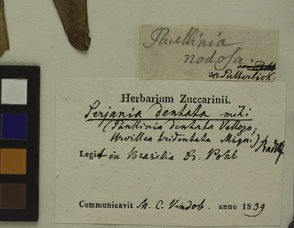 Paullinia
nodosa.
sec. Putterlick.
Herbarium Zuccarinii.
Serjania dentata mihi
(Paullinia dentata Vellozo;
Urvillea tridentata Miqu.) Radlk
Legit in Brasilia Dr. Pohl
Communicavit M. C. Vindob. anno 1839